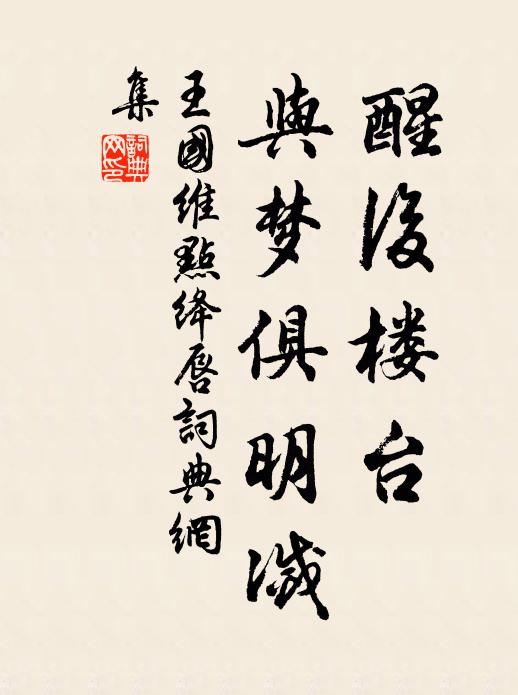 醒後楼台
與梦俱明滅
王國維點绛唇詞典網
集
詞典網印